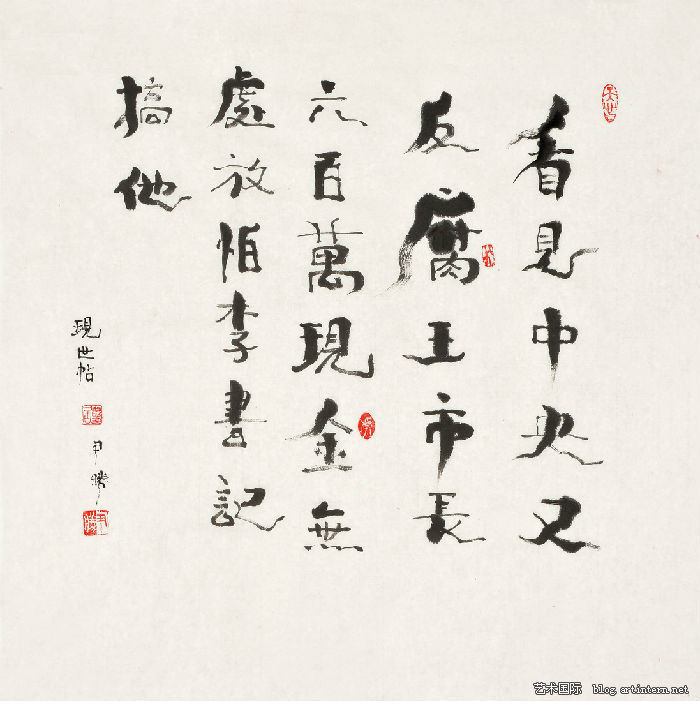 看見中央又
反腐王市長
六百萬現金無
處放怕李書記
搞他
現世帖
尹勝
艺术国际 blog.artintern.net